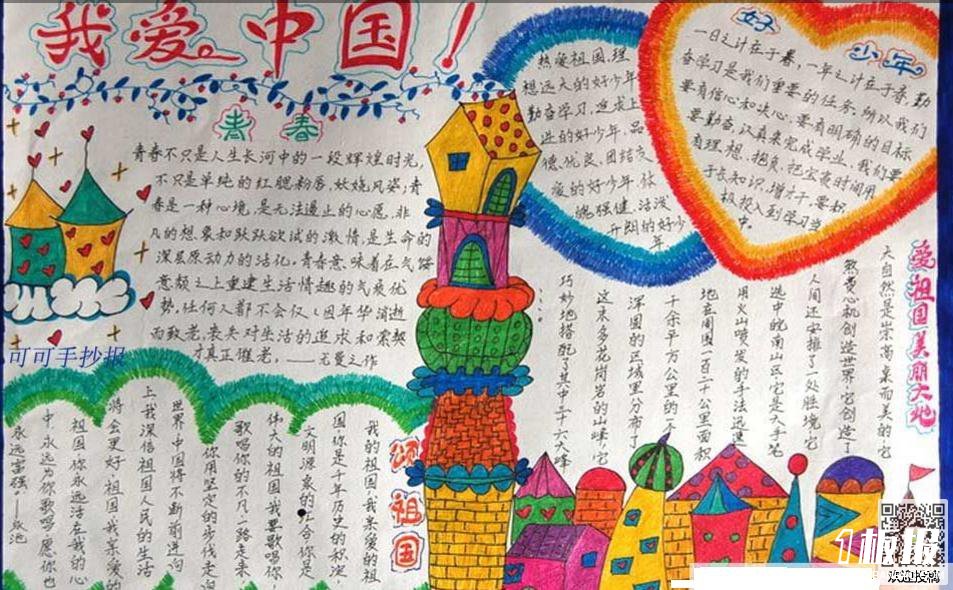 我爱中国!
青春
青春不只是人生长河中的一段辉煌时光,
不只是单纯的红腮粉唇,妖娆风姿;青
春是一种心境,是无法遏止的心愿,非
凡的想象和跃跃欲试的激情,是生命的
深层原动力的活化。青春意味着在气馁
意颓之上重建生活情趣的气质优
势,任何人都不会仅仅因年华消逝
而致老,丧失对生活的追求和索契
才真正催老,——尤曼之作
可可手抄报
热爱祖国,理
想远大的好少年
勤奋学习,追求上
进的好少年,品
德优良,团结友
爱的好少年,体
魄强健,活泼
开朗的好少
年
好少年
一日之计在于春,一年之计在于春,勤
奋学习是我们重要的任务,所以我们
要有信心和决心,要有明确的目标
要勤奋,认真来完成学业,我们要
有理想,抱负,把宝贵时间用
于长知识,增才干,要积
极投入到学习当
中.
爱祖国美丽大地
大自然是崇高卓而美的,它
煞费心机创造世界,它创造了
人间还安排了一处胜境,它
选中皖南山区,它是大手笔
用火山喷发的手法迅速
地在周围一百二十公里面积
千余平方公里的
浑圆的区域里分布了
这末多花岗岩的山峰,它
巧妙地搭配了其中三十六大峰
颂祖国
我的祖国,我亲爱的祖
国,你是千年历史的积淀,
文明源泉的汇合,你是
伟大的祖国,我要歌唱你,
歌唱你的不凡一路走来
你用坚定的步伐走向
世界中国将不断前进向
上我深信祖国人民的生活
将会更好,祖国,我亲爱的
祖国,你永远活在我的心
中,永远为你歌唱,愿你也
永远富强!——永池
欢迎投稿